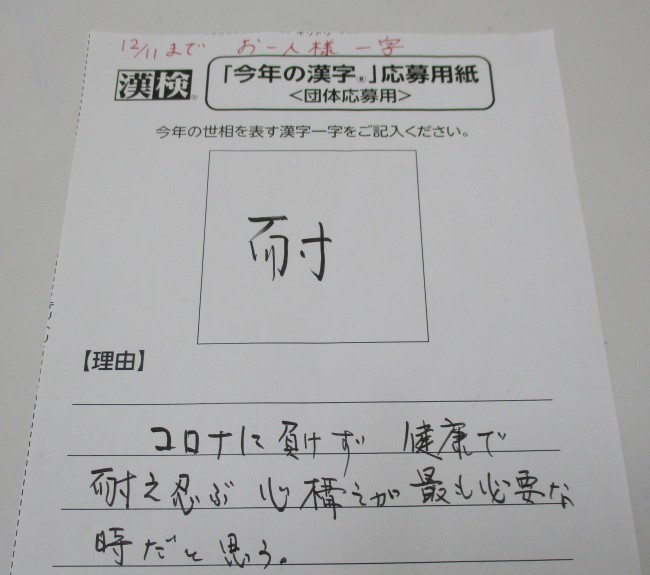 12/11まで お一人様 一字
漢検®
「今年の漢字®」応募用紙
<団体応募用>
今年の世相を表す漢字一字をご記入ください。
耐
【理由】
コロナに負けず 健康で
耐え忍ぶ 心構えが 最も必要な
時だと思う。